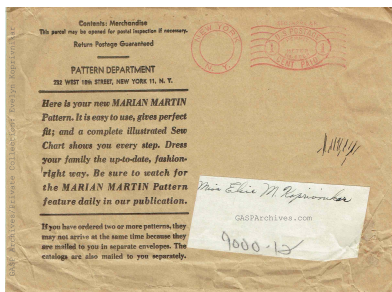 Contents: Merchandise
This parcel may be opened for postal inspection if necessary.
Return Postage Guaranteed
PATTERN DEPARTMENT
232 WEST 18th STREET, NEW YORK 11, N. Y.
Here is your new MARIAN MARTIN
Pattern. It is easy to use, gives perfect
fit; and a complete illustrated Sew
Chart shows you every step. Dress
your family the up-to-date, fashion-
right way. Be sure to watch for
the MARIAN MARTIN Pattern
feature daily in our publication.
If you have ordered two or more patterns, they
may not arrive at the same time because they
are mailed to you in separate envelopes. The
catalogs are also mailed to you separately.
NEW YORK
N. Y.
U.S. POSTAGE
CENT PAID
Miss Elsie M. Koprivnikar
GASPArchives.com
9000-12